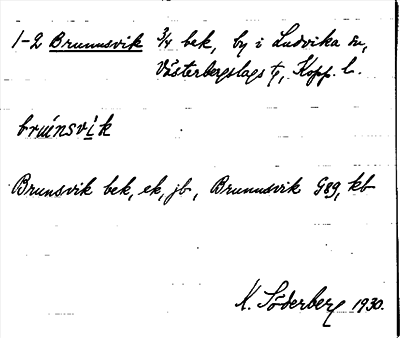 1-2 Brunnsvik 3/4 bek, by i Ludvika sn,
Västerbergslags tg, Kopp. l.
bruinsvik
Brunsvik bek, ek, jb, Brunnsvik G89, kb
K. Söderberg 1930.